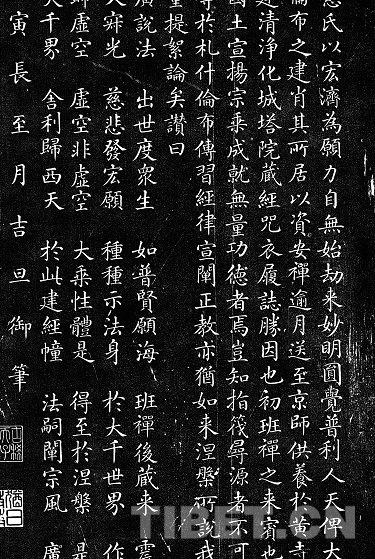 氏以宏濟為願力自無始劫来妙明圓覺普利人天俾大
倫布之建肖其所居以資安禪逾月送至京師供養於黃寺
建清淨化城塔院藏經咒衣履誌勝因也初班禪之来賓也
國土宣揚宗乘成就無量功德者焉豈知指筏尋源者不可
尊於札什倫布傳習經律宣闡正教亦猶如来涅槃所說我
提絮論矣讚曰
廣說法 出世度衆生 如普賢願海 班禪後藏来 震
大寂光 慈悲發宏願 種種示法身 於大千世界 作
虛空 虛空非虛空 大乘性體是 得至於涅槃 是
大千界 舍利歸西天 於此建經幢 法嗣闡宗風 廣
寅長至月吉旦御筆
TIBET.CN